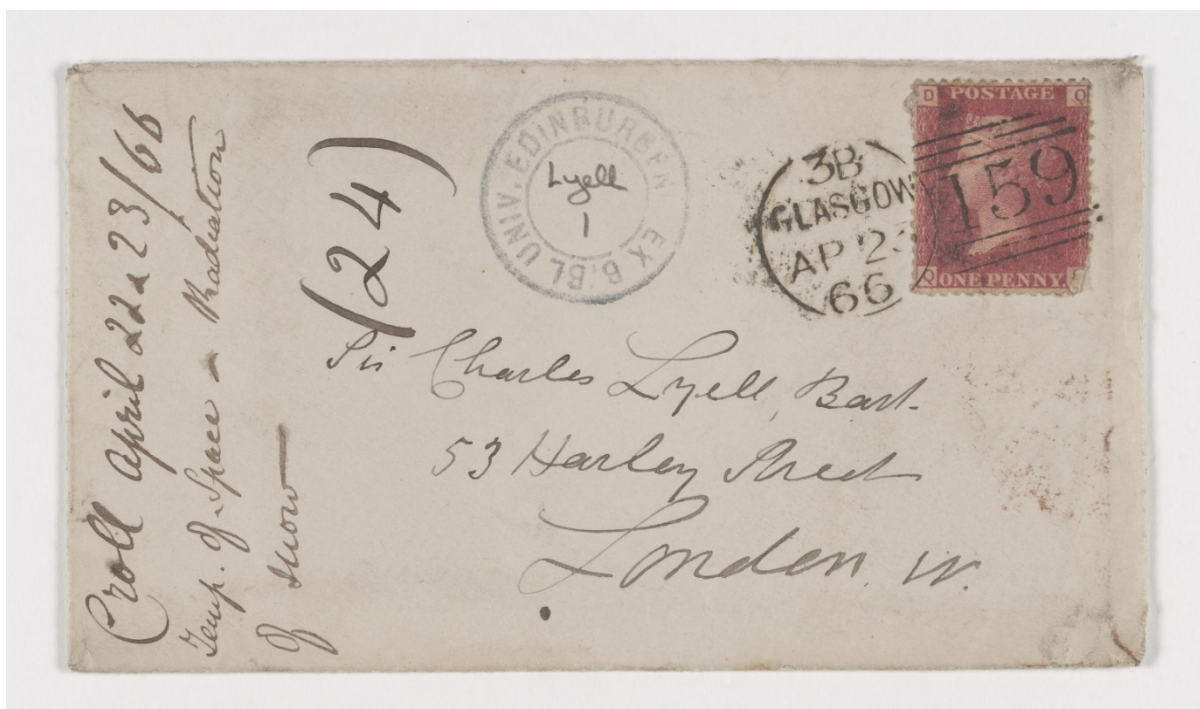 Croll April 22 & 23/66
Temp. of Space – Radiation
of snow —
(24)
EX BIBL UNIV. EDINBURGEN
Lyell
1
3B
GLASGOW
AP 23
66
159
D POSTAGE Q
Q ONE PENNY.
Sir Charles Lyell, Bart.
53 Harley Street
London. W.